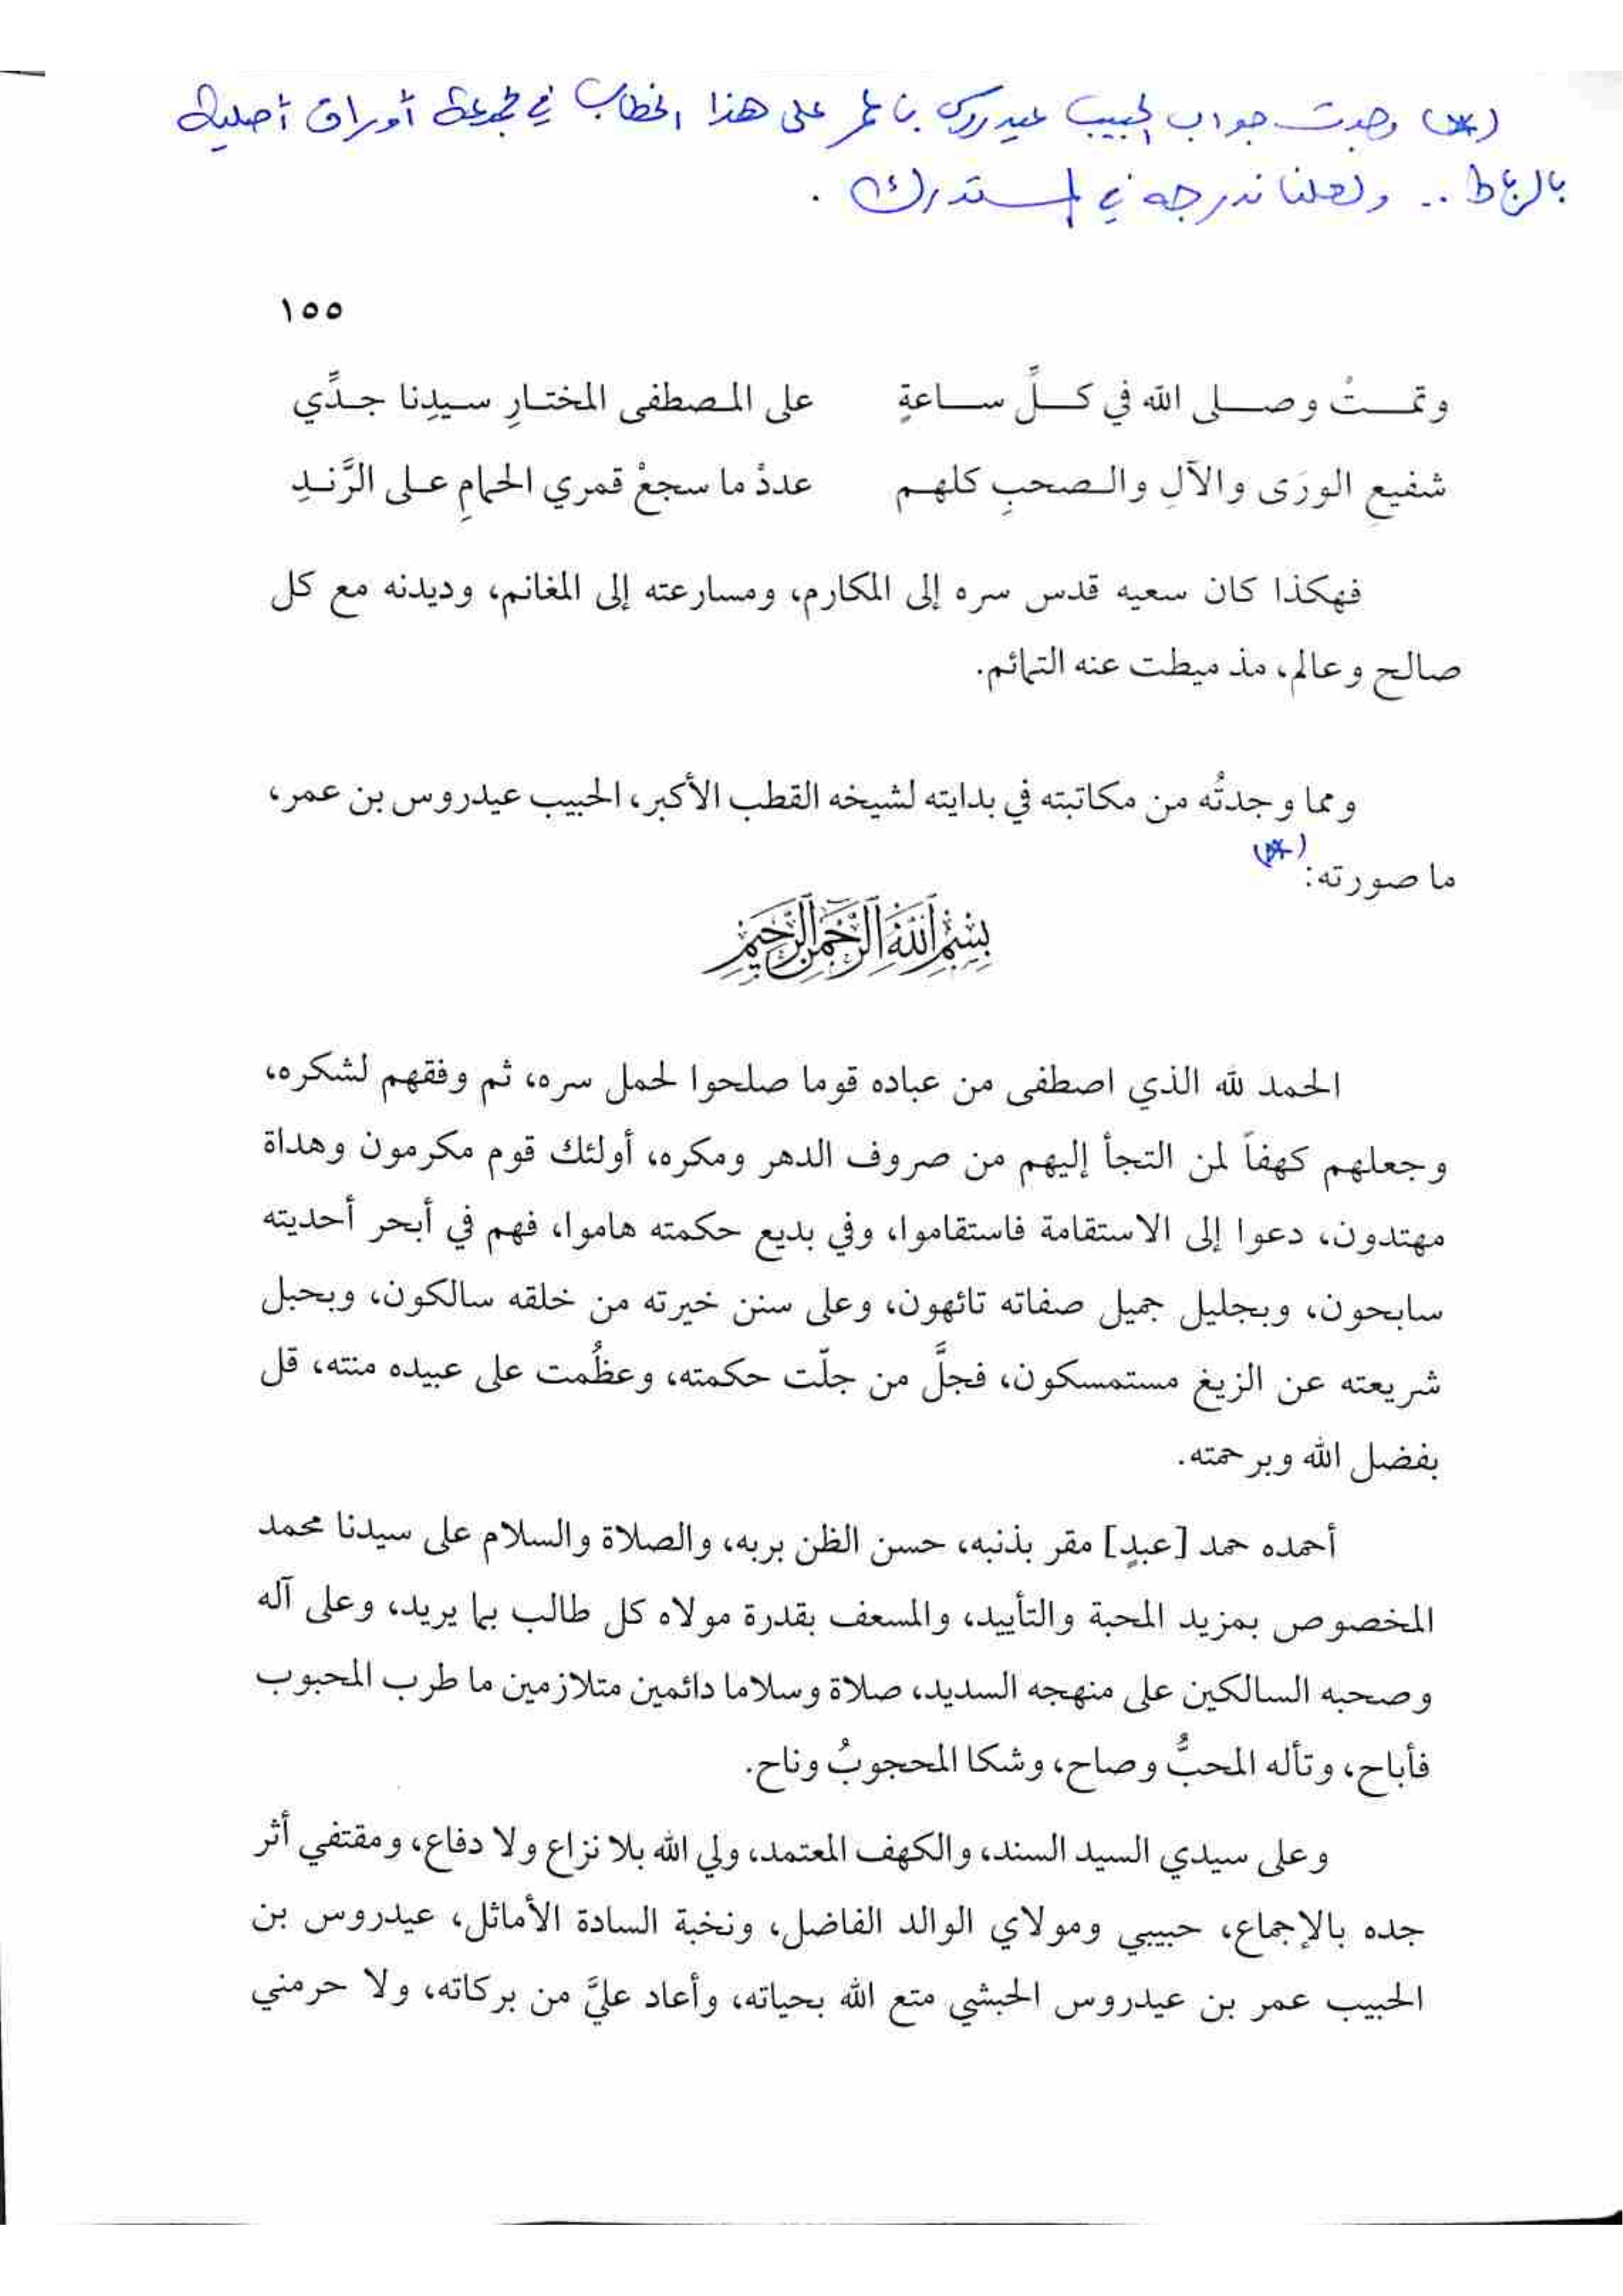 (*) وجدت جواب الحبيب عيدروس بن عمر على هذا الخطاب في مجموعة أوراق أصلية
بالرباط .. ولعلنا ندرجه في المستدرك .
١٥٥
وتمــتْ وصــلى الله في كــلِّ ســاعةٍ على المصطفى المختارِ سيدِنا جدِّي
شفيعِ الورَى والآلِ والصحبِ كلهم عددْ ما سجعْ قمري الحمامِ على الرَّندِ
فهكذا كان سعيه قدس سره إلى المكارم، ومسارعته إلى المغانم، وديدنه مع كل
صالح وعالم، مذ ميطت عنه التمائم.
ومما وجدتُه من مكاتبته في بدايته لشيخه القطب الأكبر، الحبيب عيدروس بن عمر،
ما صورته: (*)
بِسْمِ اللَّهِ الرَّحْمَنِ الرَّحِيمِ
الحمد لله الذي اصطفى من عباده قوما صلحوا لحمل سره، ثم وفقهم لشكره،
وجعلهم كهفاً لمن التجأ إليهم من صروف الدهر ومكره، أولئك قوم مكرمون وهداة
مهتدون، دعوا إلى الاستقامة فاستقاموا، وفي بديع حكمته هاموا، فهم في أبحر أحديته
سابحون، وبجليل جميل صفاته تائهون، وعلى سنن خيرته من خلقه سالكون، وبحبل
شريعته عن الزيغ مستمسكون، فجلَّ من جلّت حكمته، وعظُمت على عبيده منته، قل
بفضل الله وبرحمته.
أحمده حمد [عبدٍ] مقر بذنبه، حسن الظن بربه، والصلاة والسلام على سيدنا محمد
المخصوص بمزيد المحبة والتأييد، والمسعف بقدرة مولاه كل طالب بما يريد، وعلى آله
وصحبه السالكين على منهجه السديد، صلاة وسلاما دائمين متلازمين ما طرب المحبوب
فأباح، وتأله المحبُّ وصاح، وشكا المحجوبُ وناح.
وعلى سيدي السيد السند، والكهف المعتمد، ولي الله بلا نزاع ولا دفاع، ومقتفي أثر
جده بالإجماع، حبيبي ومولاي الوالد الفاضل، ونخبة السادة الأماثل، عيدروس بن
الحبيب عمر بن عيدروس الحبشي متع الله بحياته، وأعاد عليَّ من بركاته، ولا حرمني